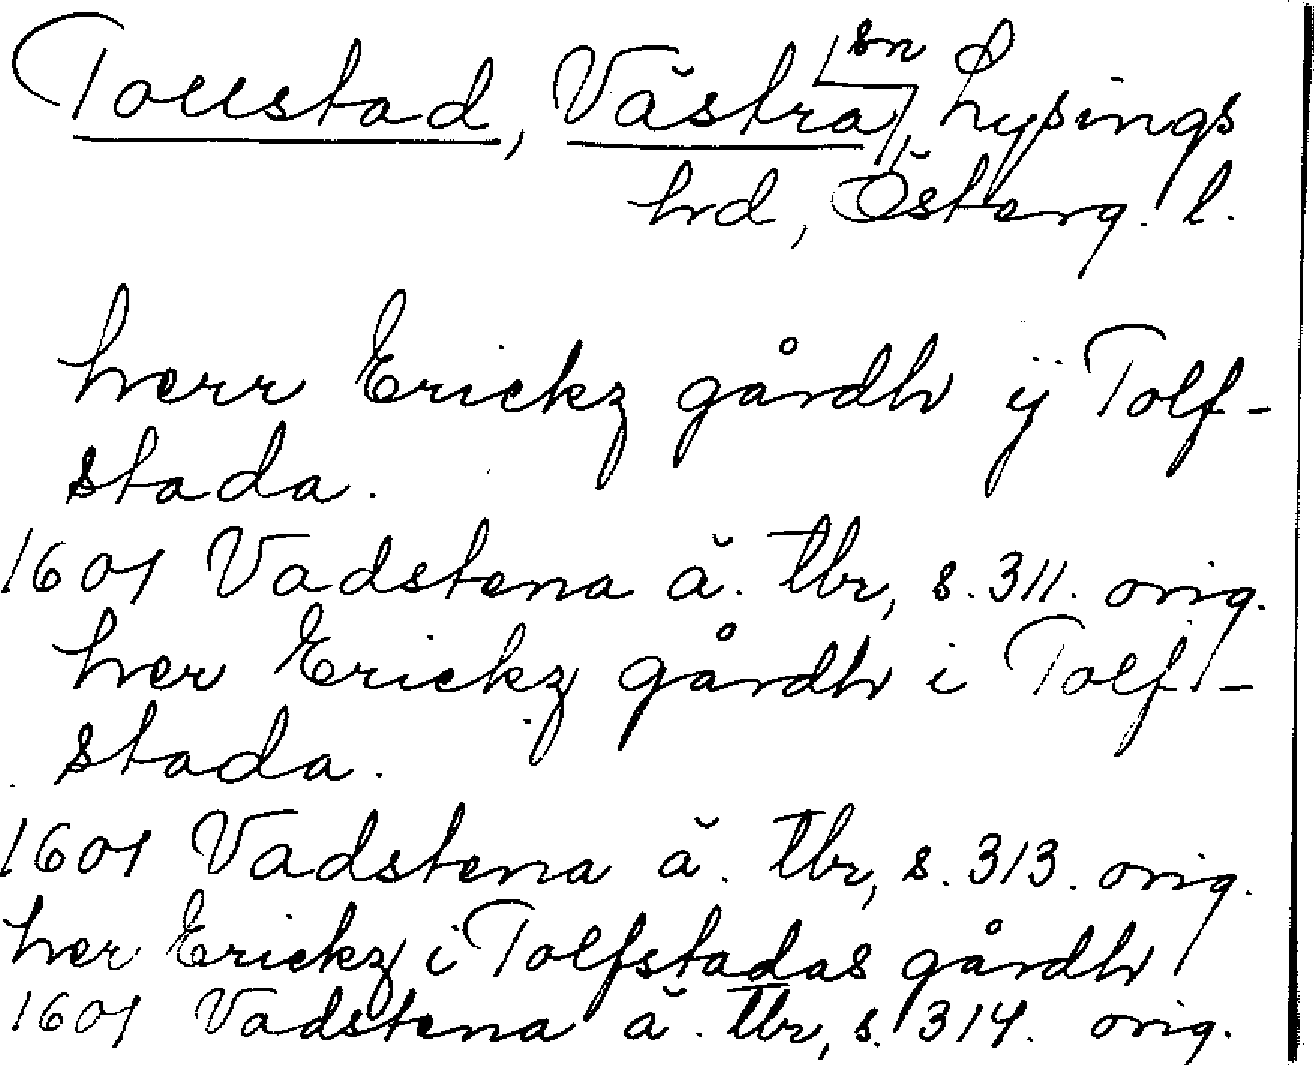 Tollstad, Västra sn, Lysings
hrd, Österg. l.
herr Erickz gårdh ij Tolf-
stada.
1601 Vadstena ä. tbr, s. 311. orig.
her Erickz gårdh i Tolf-
stada.
1601 Vadstena ä. tbr, s. 313. orig.
her Erickz i Tolfstadas gårdh
1601 Vadstena ä. tbr, s. 314. orig.